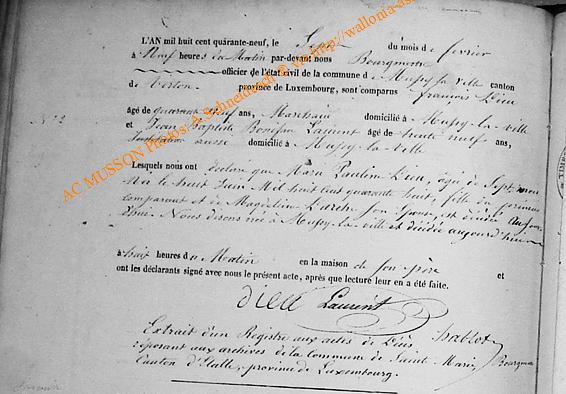 L'AN mil huit cent quarante-neuf, le Sept du mois de février
à Neuf heures du Matin par-devant nous Bourgmestre
officier de l'état civil de la commune de Mussy la ville canton
de Virton, province de Luxembourg, sont comparus françois Dieu
âgé de quarante neuf ans, Marchand domicilié à Mussy-la-ville
N° 2
et Jean Baptiste Laurent âgé de trente neuf ans,
domicilié à Mussy-la-ville
Lesquels nous ont déclaré que Marie Pauline Dieu, âgée de Sept mois
Née le huit Juin Mil huit cent quarante huit, fille du premier
comparant et de Magdeleine son épouse, est décédée aujour
d'hui. Nous disons née à Mussy-la-ville et décédée aujourd'hui
à huit heures du Matin en la maison de son père et
ont les déclarants signé avec nous le présent acte, après que lecture leur en a été faite.
dieu Laurent
Extrait d'un Registre aux actes de Décès
reposant aux archives de la Commune de Sainte Marie,
Canton d'Etalle, province de Luxembourg.
AC MUSSON Photos: A Schneidesch © sur http://wallonia-as